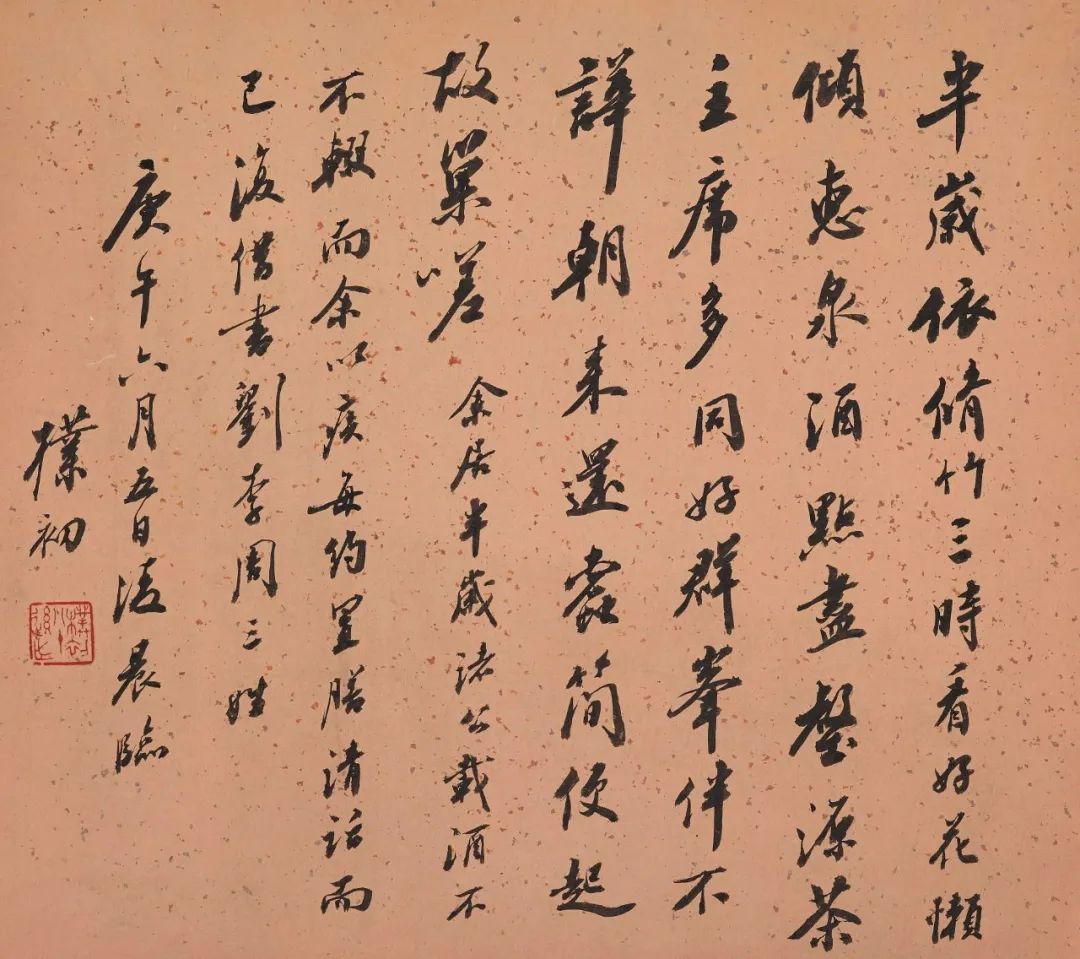 半歲依脩竹三時看好花懶
傾惠泉酒點盡壑源茶
主席多同好群峯伴不
譁朝来還蠹簡便起
故巢嗟 余居半歲諸公載酒不
不輟而余以疾每約置膳清話而
已復借書劉李周三姓
庚午六月五日凌晨臨
樸初